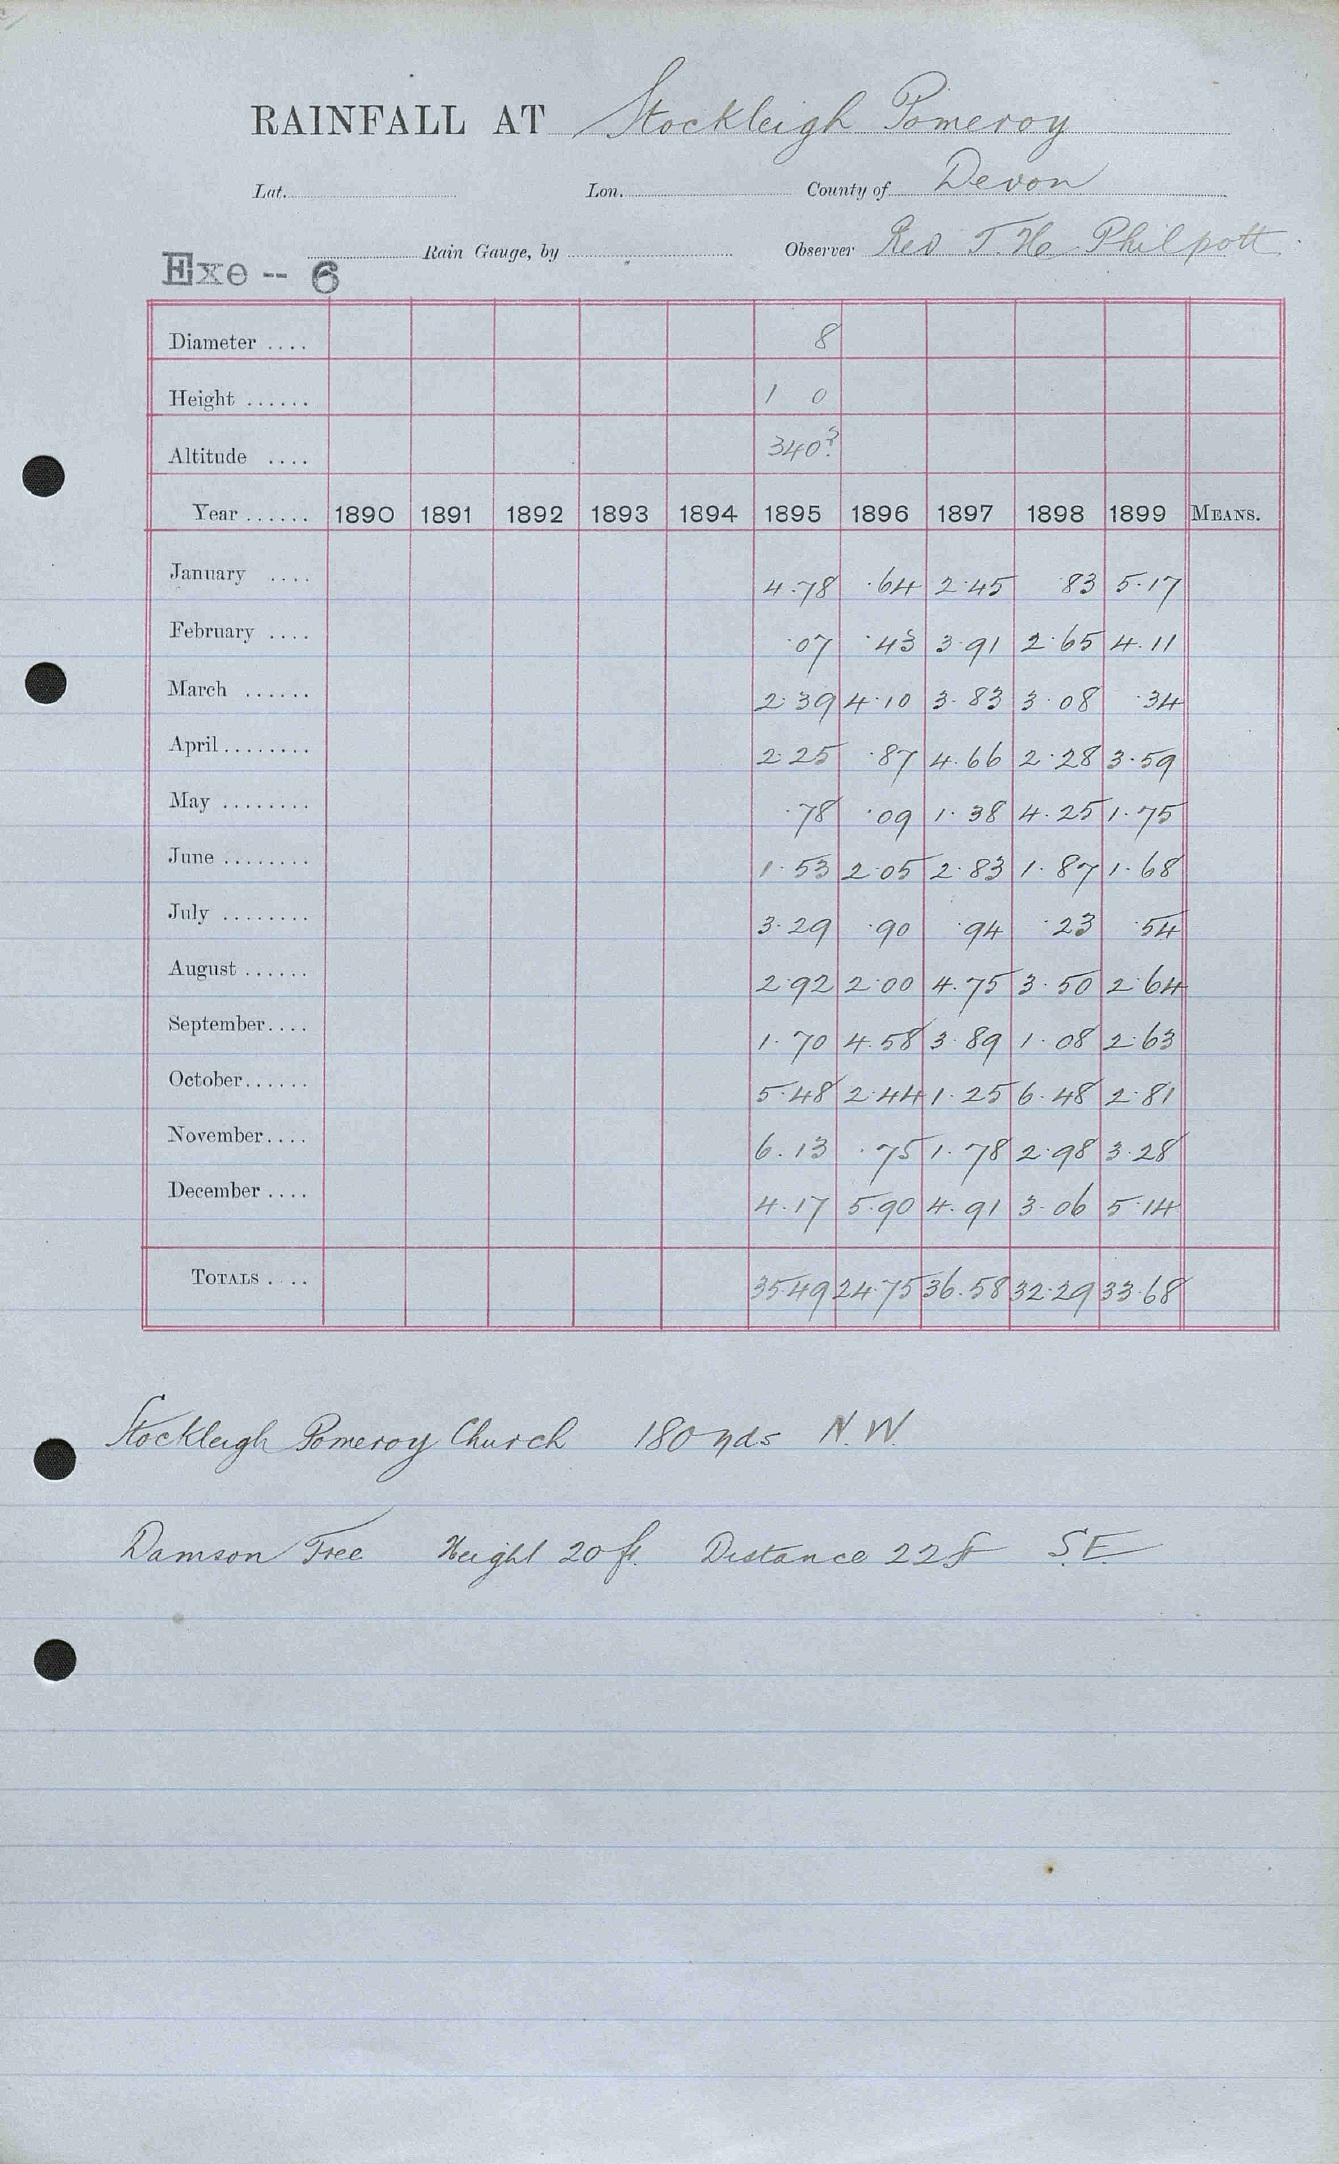 RAINFALL AT Stockleigh Pomeroy
Lat. Lon. County of Devon
Rain Gauge, by Observer Rev T. H. Philpott
Exe -- 6
Diameter .... 8
Height ...... 1 0
Altitude .... 340?
Year ...... 1890 1891 1892 1893 1894 1895 1896 1897 1898 1899 MEANS.
January .... 4.78 .64 2.45 .83 5.17
February .... .07 .43 3.91 2.65 4.11
March ...... 2.39 4.10 3.83 3.08 .34
April ........ 2.25 .87 4.66 2.28 3.59
May ........ .78 .09 1.38 4.25 1.75
June ........ 1.53 2.05 2.83 1.87 1.68
July ........ 3.29 .90 .94 .23 .54
August ...... 2.92 2.00 4.75 3.50 2.64
September .... 1.70 4.58 3.89 1.08 2.63
October ...... 5.48 2.44 1.25 6.48 2.81
November .... 6.13 .75 1.78 2.98 3.28
December .... 4.17 5.90 4.91 3.06 5.14
TOTALS .... 35.49 24.75 36.58 32.29 33.68
Stockleigh Pomeroy Church 180 yds N.W.
Damson Tree Height 20 ft. Distance 22 ft S.E.